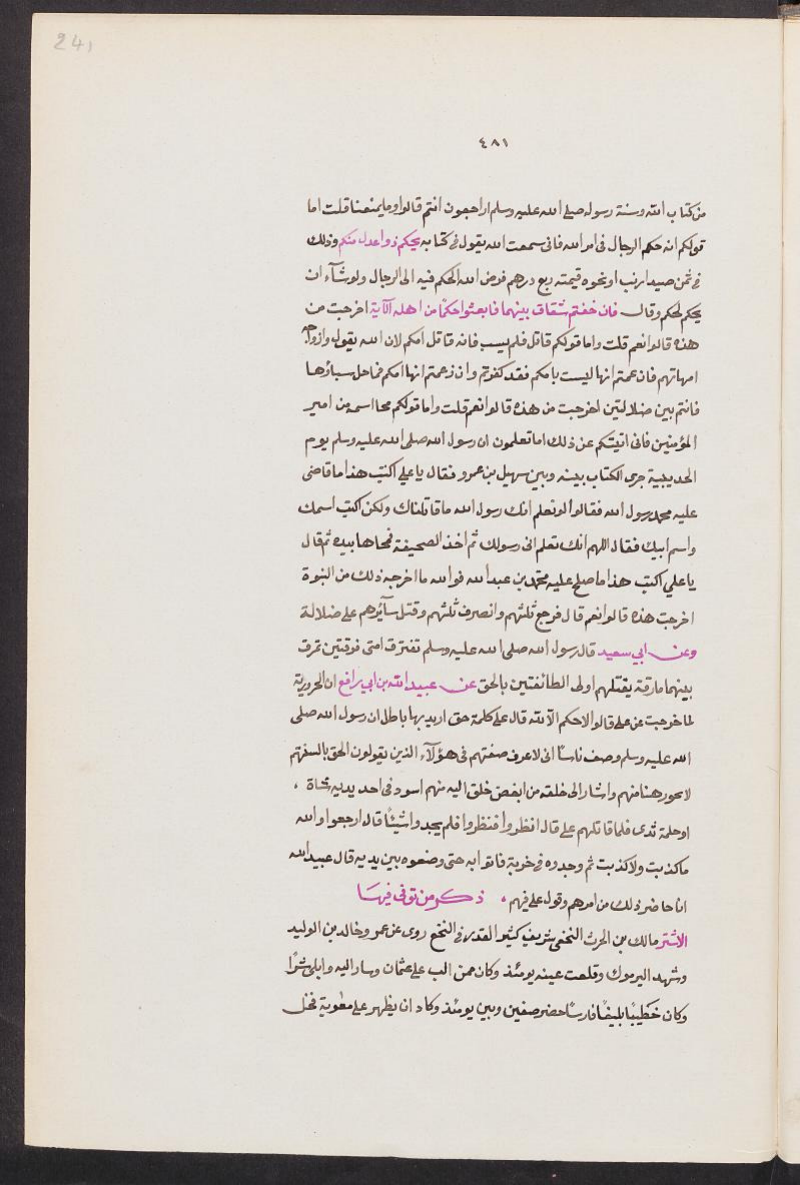 241
٤٨١
من كتاب الله وسنة رسوله صلى الله عليه وسلم اراجعون انتم قالوا وما يمنعنا قلت اما
قولكم انه حكم الرجال فى امر الله فانى سمعت الله يقول فى كتابه يحكم به ذوا عدل منكم وذلك
فى ثمن صيد ارنب او نحوه قيمته ربع درهم فوض الله الحكم فيه الى الرجال ولو شآء ان
يحكم لحكم وقال فان خفتم شقاق بينهما فابعثوا حكمًا من اهله الآية اخرجت من
هذه قالوا نعم قلت واما قولكم قاتل فلم يسب فانه قاتل امكم لان الله يقول وازواجه
امهاتهم فان زعمتم انها ليست بامكم فقد كفرتم وان زعمتم انها امكم فما حل سباؤها
فانتم بين ضلالتين اخرجت من هذه قالوا نعم قلت واما قولكم محا اسمه من امير
المؤمنين فانى اتيتكم عن ذلك اما تعلمون ان رسول الله صلى الله عليه وسلم يوم
الحديبية جرى الكتاب بينه وبين سهيل بن عمرو فقال يا على اكتب هذا ما قاضى
عليه محمد رسول الله فقالوا لو نعلم انك رسول الله ما قاتلناك ولكن اكتب اسمك
واسم ابيك فقال اللهم انك تعلم انى رسولك ثم اخذ الصحيفة فمحاها بيده ثم قال
يا علي اكتب هذا ما صلح عليه محمد بن عبد الله فوالله ما اخرجه ذلك من النبوة
اخرجت هذه قالوا نعم قال فرجع ثلثهم وانصرف ثلثهم وقتل سآئرهم على ضلالة
وعن ابي سعيد قال رسول الله صلى الله عليه وسلم تفترق امتى فرقتين تمرق
بينهما مارقة يقتلهم اولى الطائفتين بالحق عن عبيد الله بن ابي رافع ان الحرورية
لما خرجت عن على قالوا لا حكم الا لله قال على كلمة حق اريد بها باطل ان رسول الله صلى
الله عليه وسلم وصف ناسًا انى لا عرف صفتهم فى هؤلآء الذين يقولون الحق بالسنتهم
لا يجوز هنا منهم واشار الى خلقه من ابغض خلق اليه منهم اسود فى احد يديه شاة
او حلمة ثدى فلما قاتلهم على قال انظروا فنظروا فلم يجدوا شيئًا قال ارجعوا والله
ما كذبت ولا كذبت ثم وجدوه فى خربة فاتوا به حتى وضعوه بين يديه قال عبيد الله
انا حاضر ذلك من امرهم وقول على فيهم ، ذكر من توفى فيها
الاشتر مالك بن الحرث النخعى شريف كبير القدر فى النخع روى عن عمر وخالد بن الوليد
وشهد اليرموك وقلعت عينه يومئذ وكان ممن الب على عثمان وسار اليه وابلى شرًا
وكان خطيبًا بليغًا فارسًا حضر صفين وبين يومئذ وكاد ان يظهر على معوية فحل